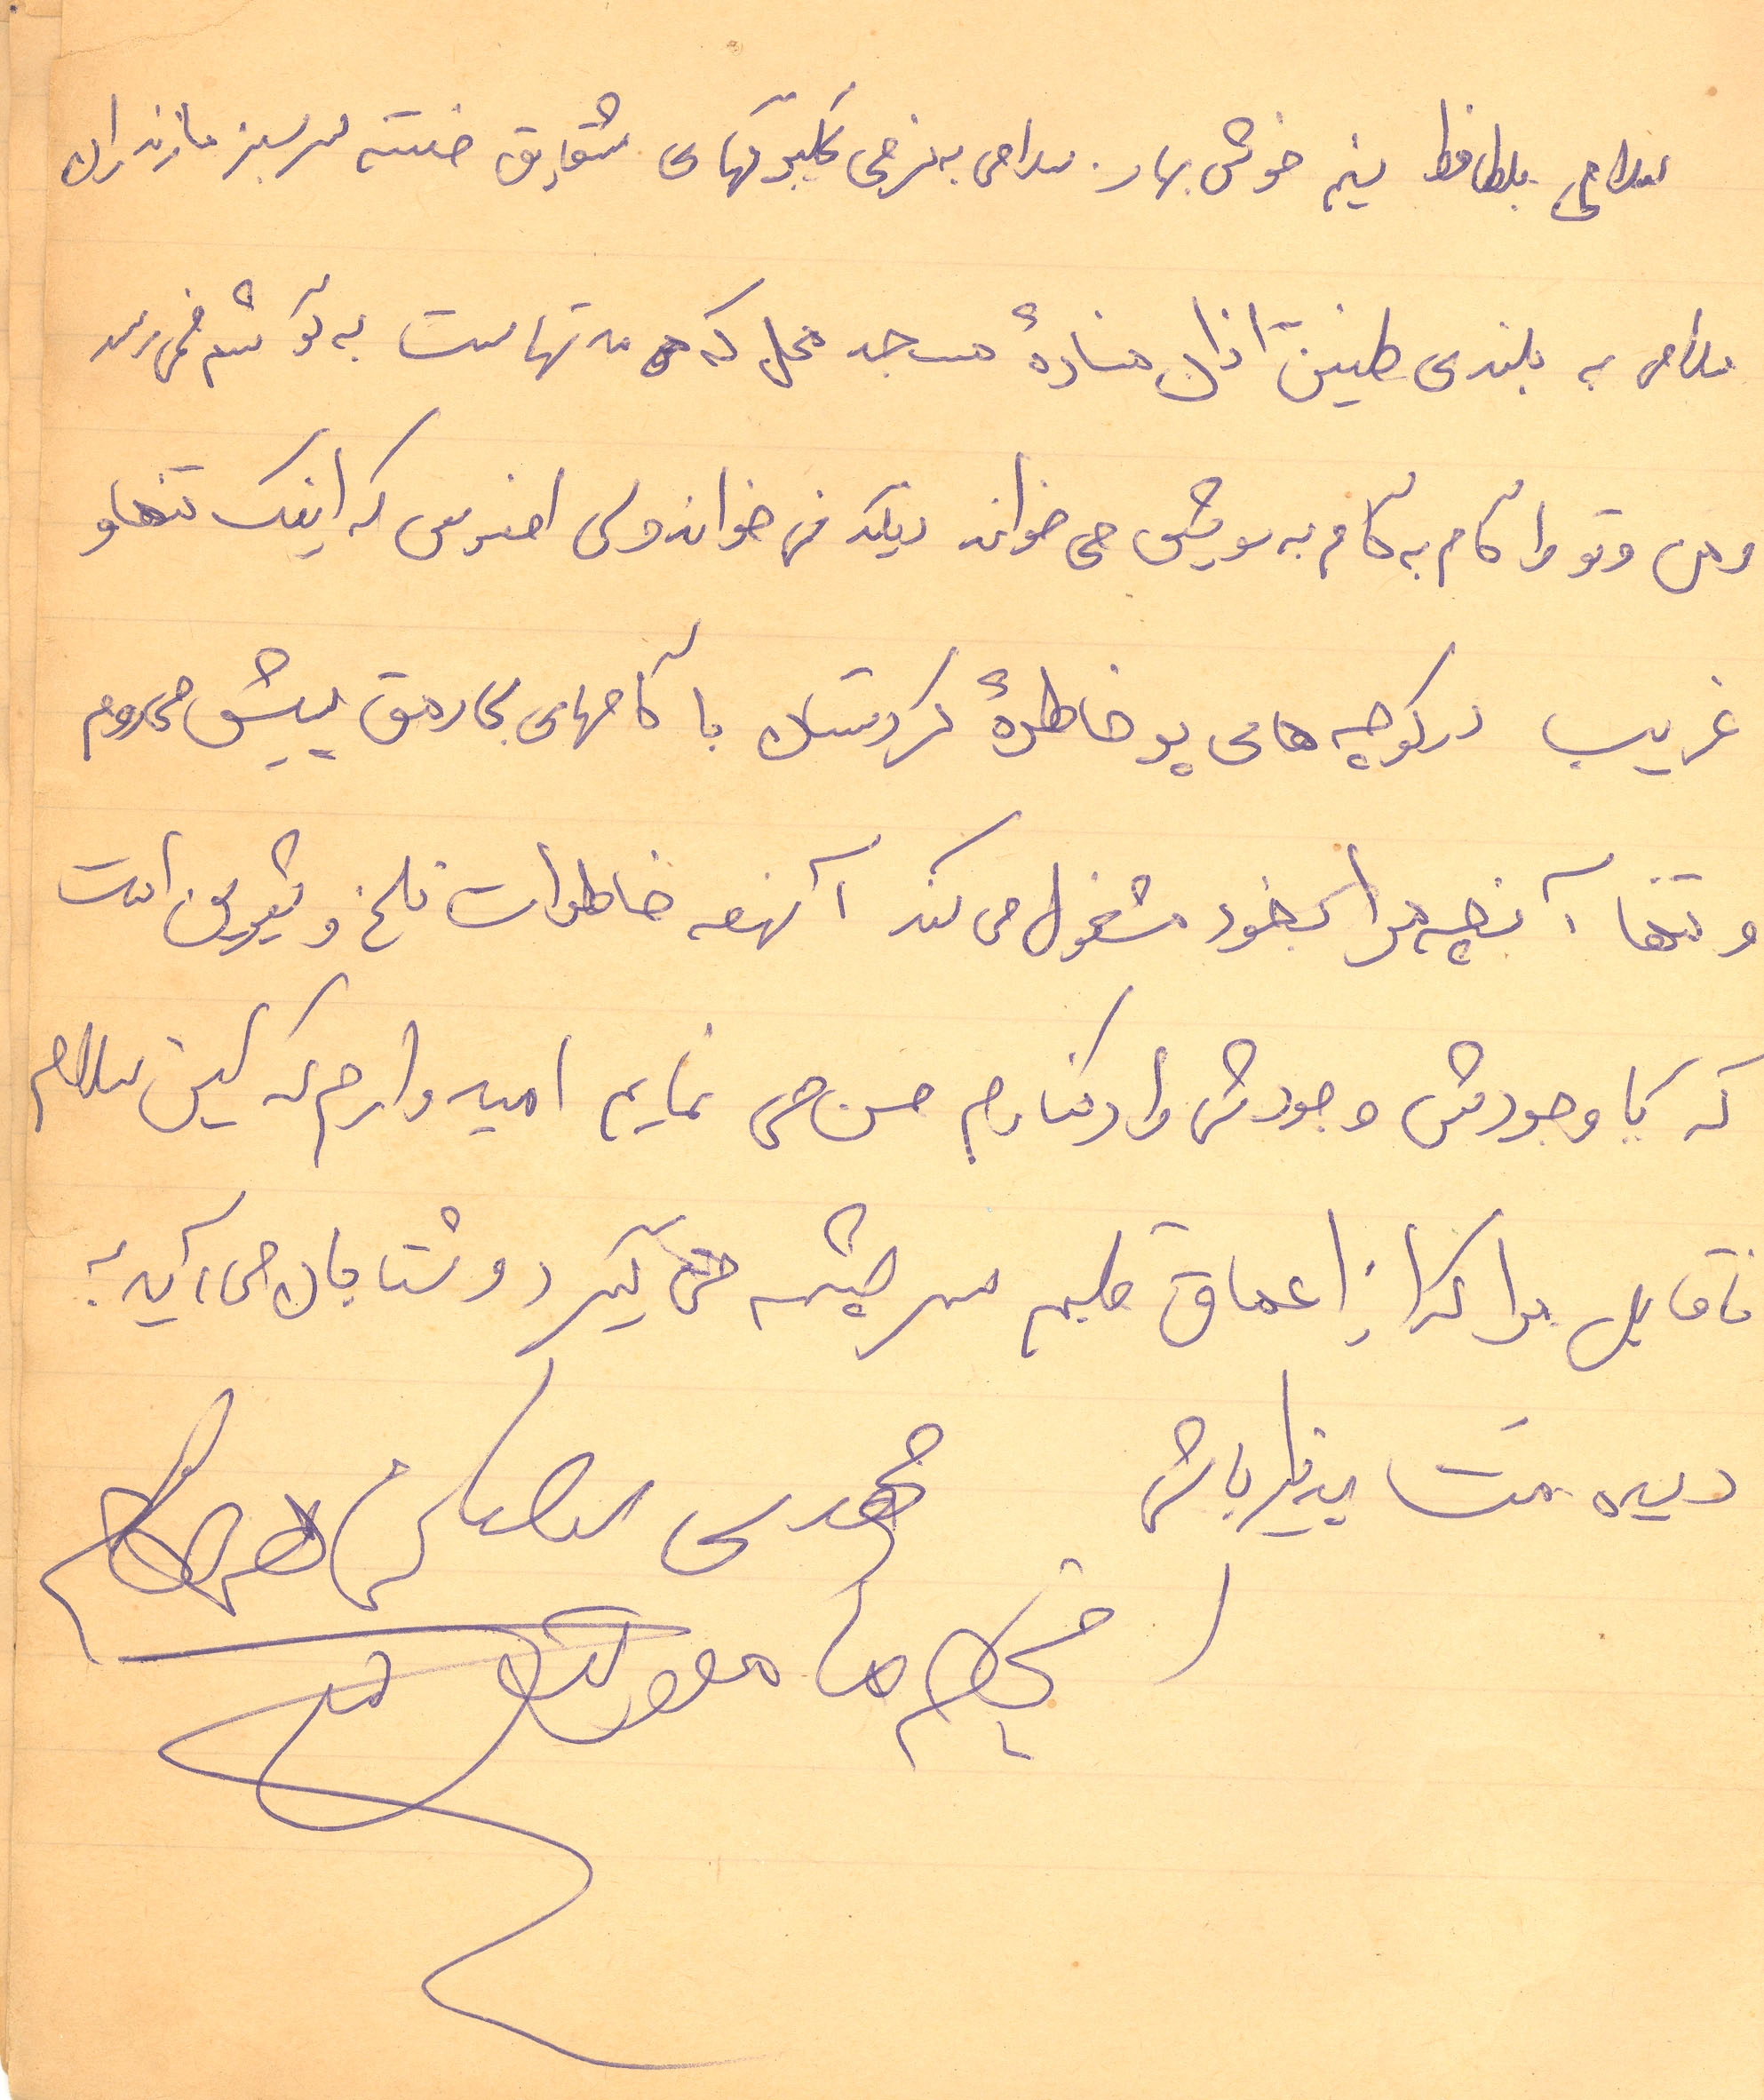 سلامی بلطافظ نیم خوش بهار. سلامی به نرمی گلبرگهای شقایق خفته سرسبز مازندران
سلامی به بلندی طنین آذان منارهٔ مسجد محل که مدتهاست به گوشم نمی‌رسد
ومن وتو را گام به گام به سویش می خواند دیگر نمی خواند ولی افسوس که اینک تنها و
غریب در کوچه های پر خاطرهٔ کردستان با گامهای بی رمق پیش می‌روم
و تنها آنچه مرا بخود مشغول می کند آنهمه خاطرات تلخ و شیرین است
که با وجودش وجودش را در کنارم حس می نمایم امیدوارم که این سلام
ناقابل مرا که از اعماق قلبم سرچشمه می گیرد و شتابان می آید به
دیده منت پذیرا باش مهدی